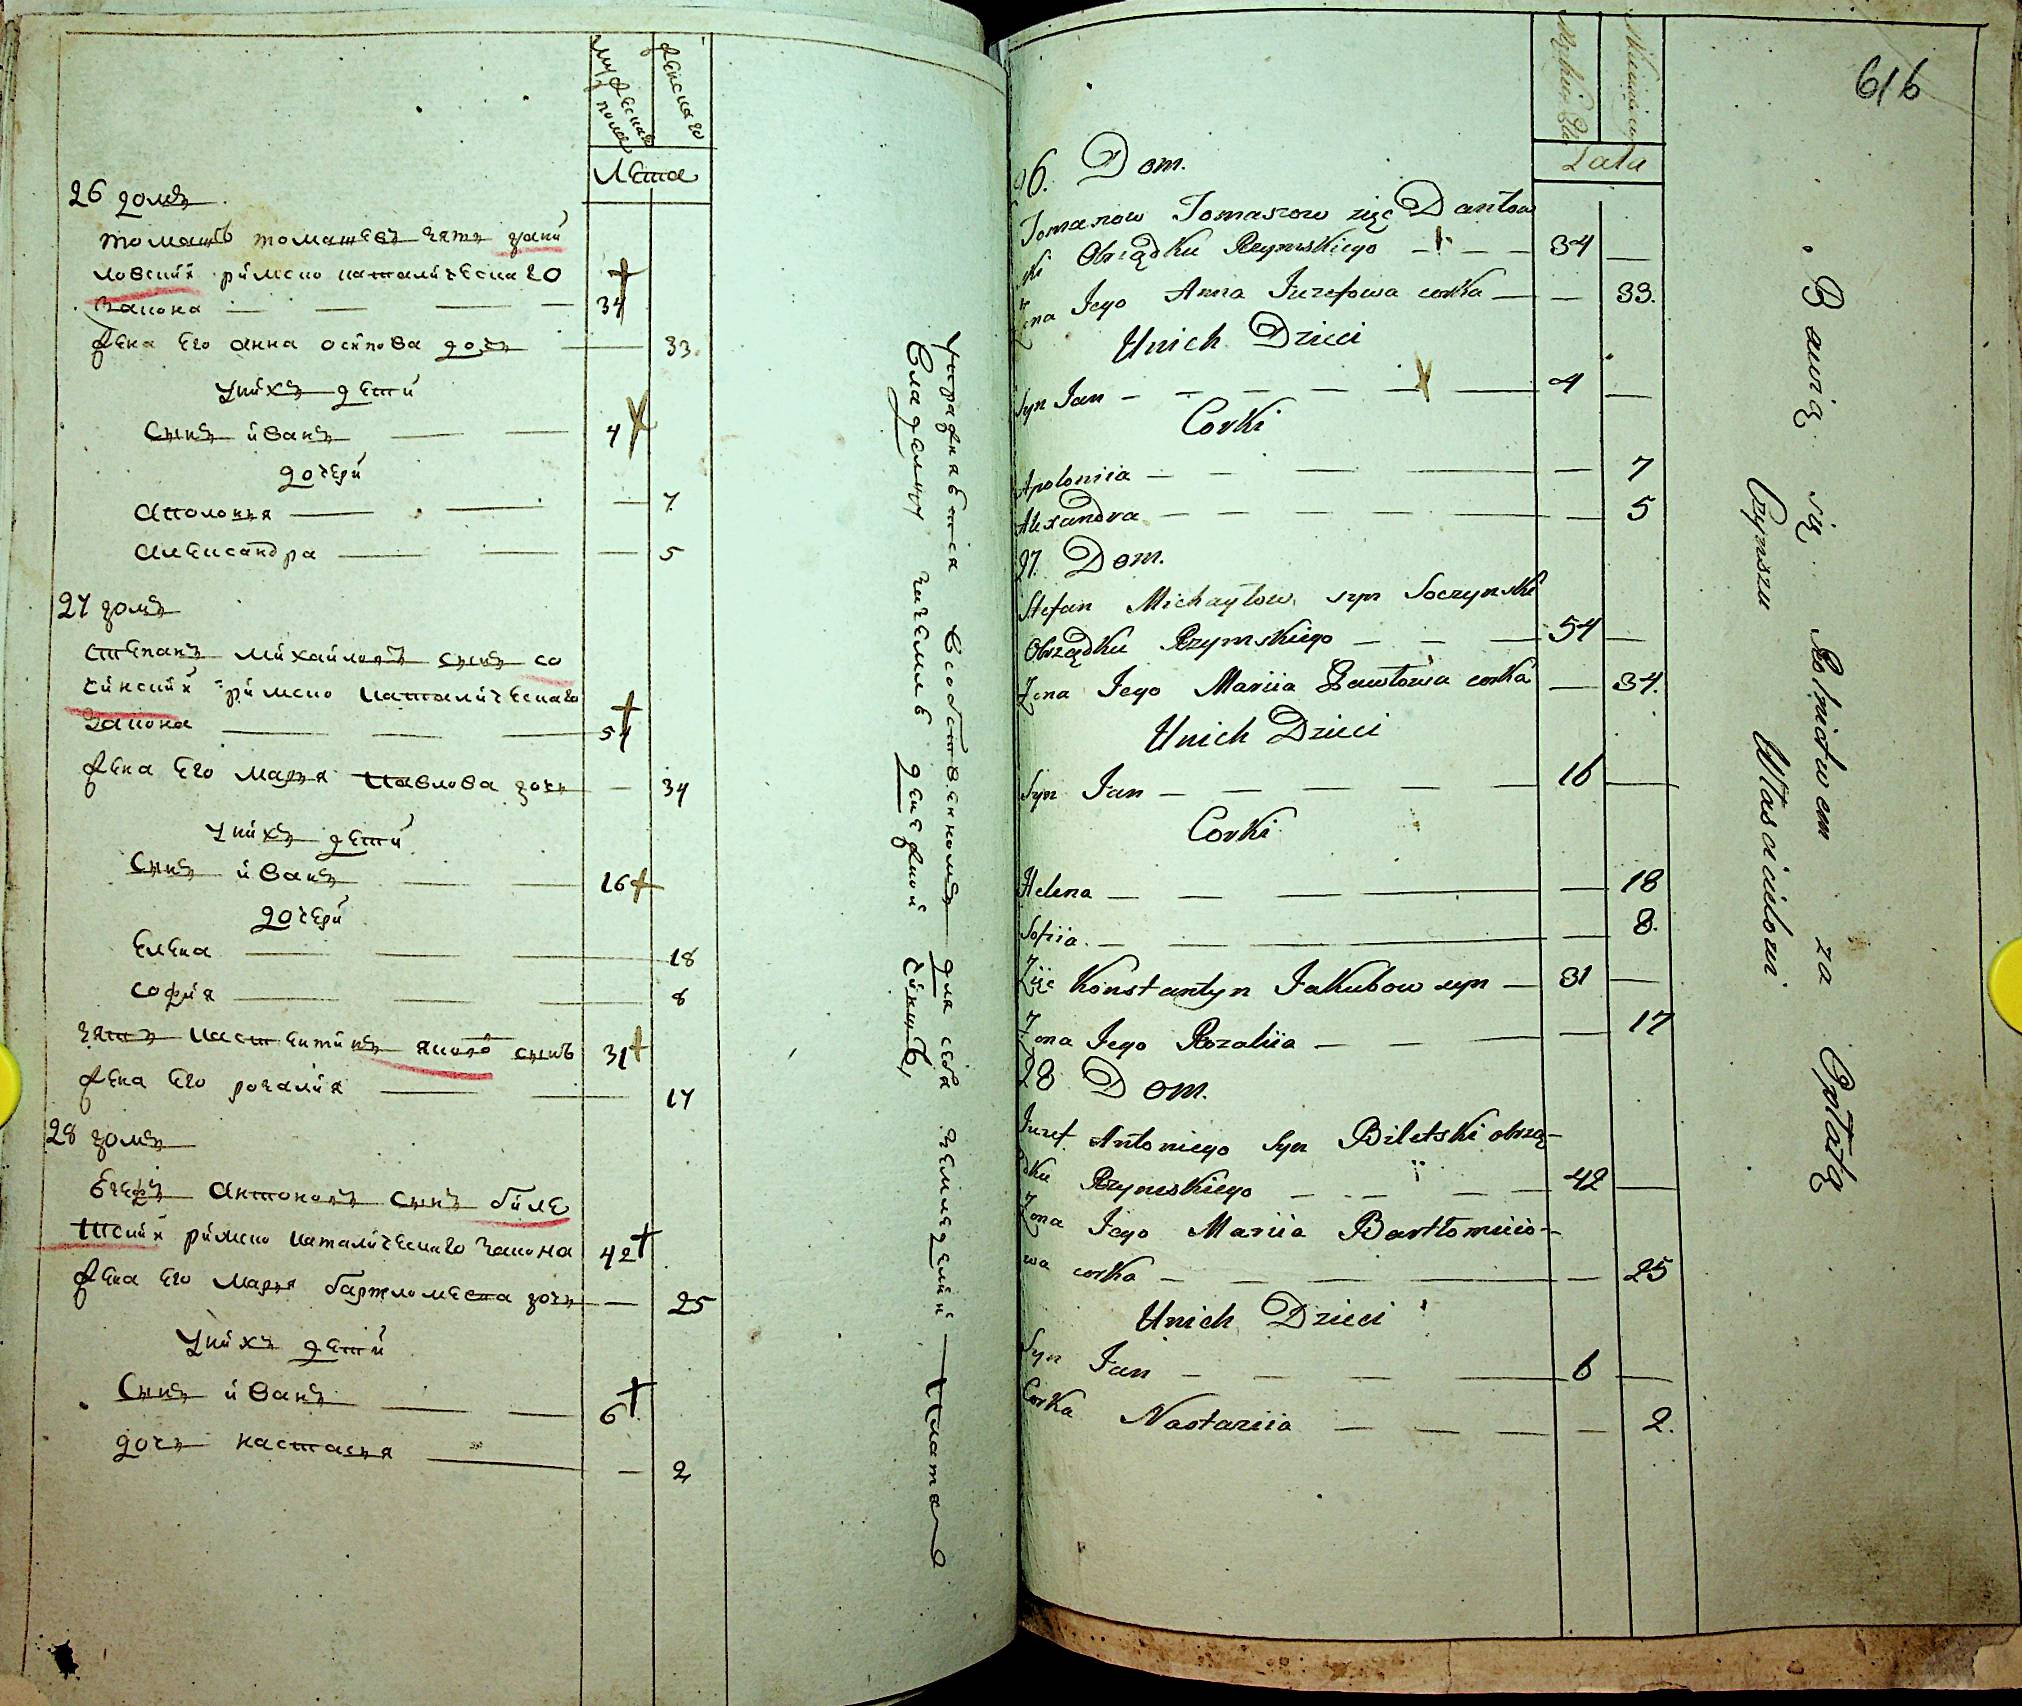 мужеска
пола
женска го
Лета
26 домъ
томашъ томашевъ зять дани
ловский римско католическаго
закона — — — — 34
жена его анна осипова дочь — 33
у нихъ дети
сынъ иванъ — — 4
дочери
аполонья — — — 7
александра — — — 5
27 домъ
степанъ михайловъ сынъ со
чинский римско католическаго
закона — — — 54
жена его марья павлова дочь — 34
у нихъ дети
сынъ иванъ — — 16
дочери
елена — — — 18
софия — — — 8
зять константинъ якубо сынъ 31
жена его розалия — — 17
28 домъ
юзефъ антоновъ сынъ биле
тский римско католическаго закона 42
жена его марья бартломеева дочь — 25
у нихъ дети
сынъ иванъ — — 6
дочь настасья — — 2
упражняются собственномъ для себя земледелии — плата
владелцу за землю денежной чиншъ
616
Męskiey
Lata
26. Dom.
Tomaszow zięc Daniłow
ski Obrządku Rzymskiego — — — 34 —
Żona Jego Anna Iuzefowa corka — — 33.
Unich Dzieci
Syn Ian — — — — — 4 —
Corki
Apoloniia — — — — — 7
Alexandra — — — — — 5
27. Dom.
Stefan Michayłow syn Soczynski
Obrządku Rzymskiego — — — 54 —
Żona Jego Mariia Pawłowa corka — 34.
Unich Dzieci
Syn Ian — — — — — 16 —
Corki
Helena — — — — — 18
Sofiia — — — — — 8.
Zięc Konstantyn Iakubow syn — 31 —
Żona Jego Rozaliia — — — — 17
28 Dom.
Iuzef Antoniego Syn Biletski obrzą-
dku Rzymskiego — — — — 42 —
Żona Jego Mariia Bartłomieio-
wa corka — — — — — 25
Unich Dzieci
Syn Ian — — — — — 6 —
Corka Nastaziia — — — — 2.
Bawią się Rolnictwem za Opłatą
Czynszu Własciicielowi